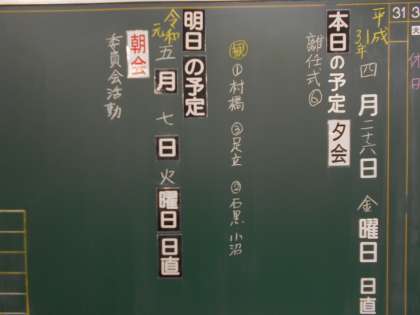 平成31年
本日の予定 四月二十六日 金曜日 日直
夕会
離任式⑥
①村橋 ②足立 ②石黒 小沼
令和元
明日の予定 五月七日 火曜日 日直
朝会
委員会活動
31
休日